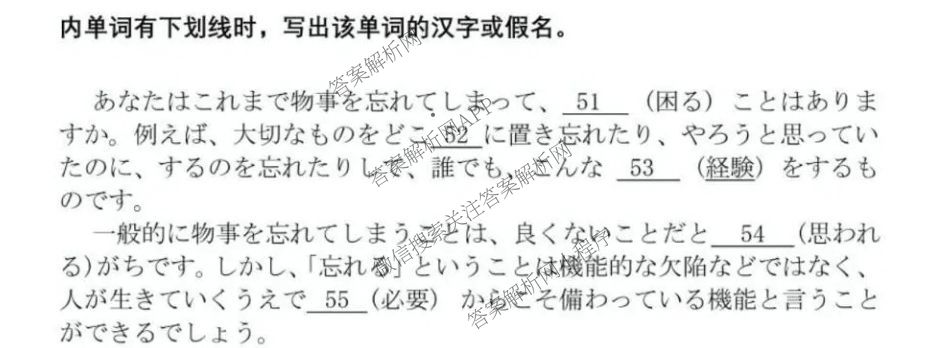 内单词有下划线时，写出该单词的汉字或假名。
あなたはこれまで物事を忘れてしまって、 51 （困る）ことはありま
すか。例えば、大切なものをどこ 52 に置き忘れたり、やろうと思ってい
たのに、するのを忘れたりして、誰でも、こんな 53 （経験）をするも
のです。
一般的に物事を忘れてしまうことは、良くないことだと 54 (思われ
る)がちです。しかし、「忘れる」ということは機能的な欠陥などではなく、
人が生きていくうえで 55 (必要） からこそ備わっている機能と言うこと
ができるでしょう。
答案解析网
答案解析网APP
微信搜索关注答案解析网
答案解析网小程序